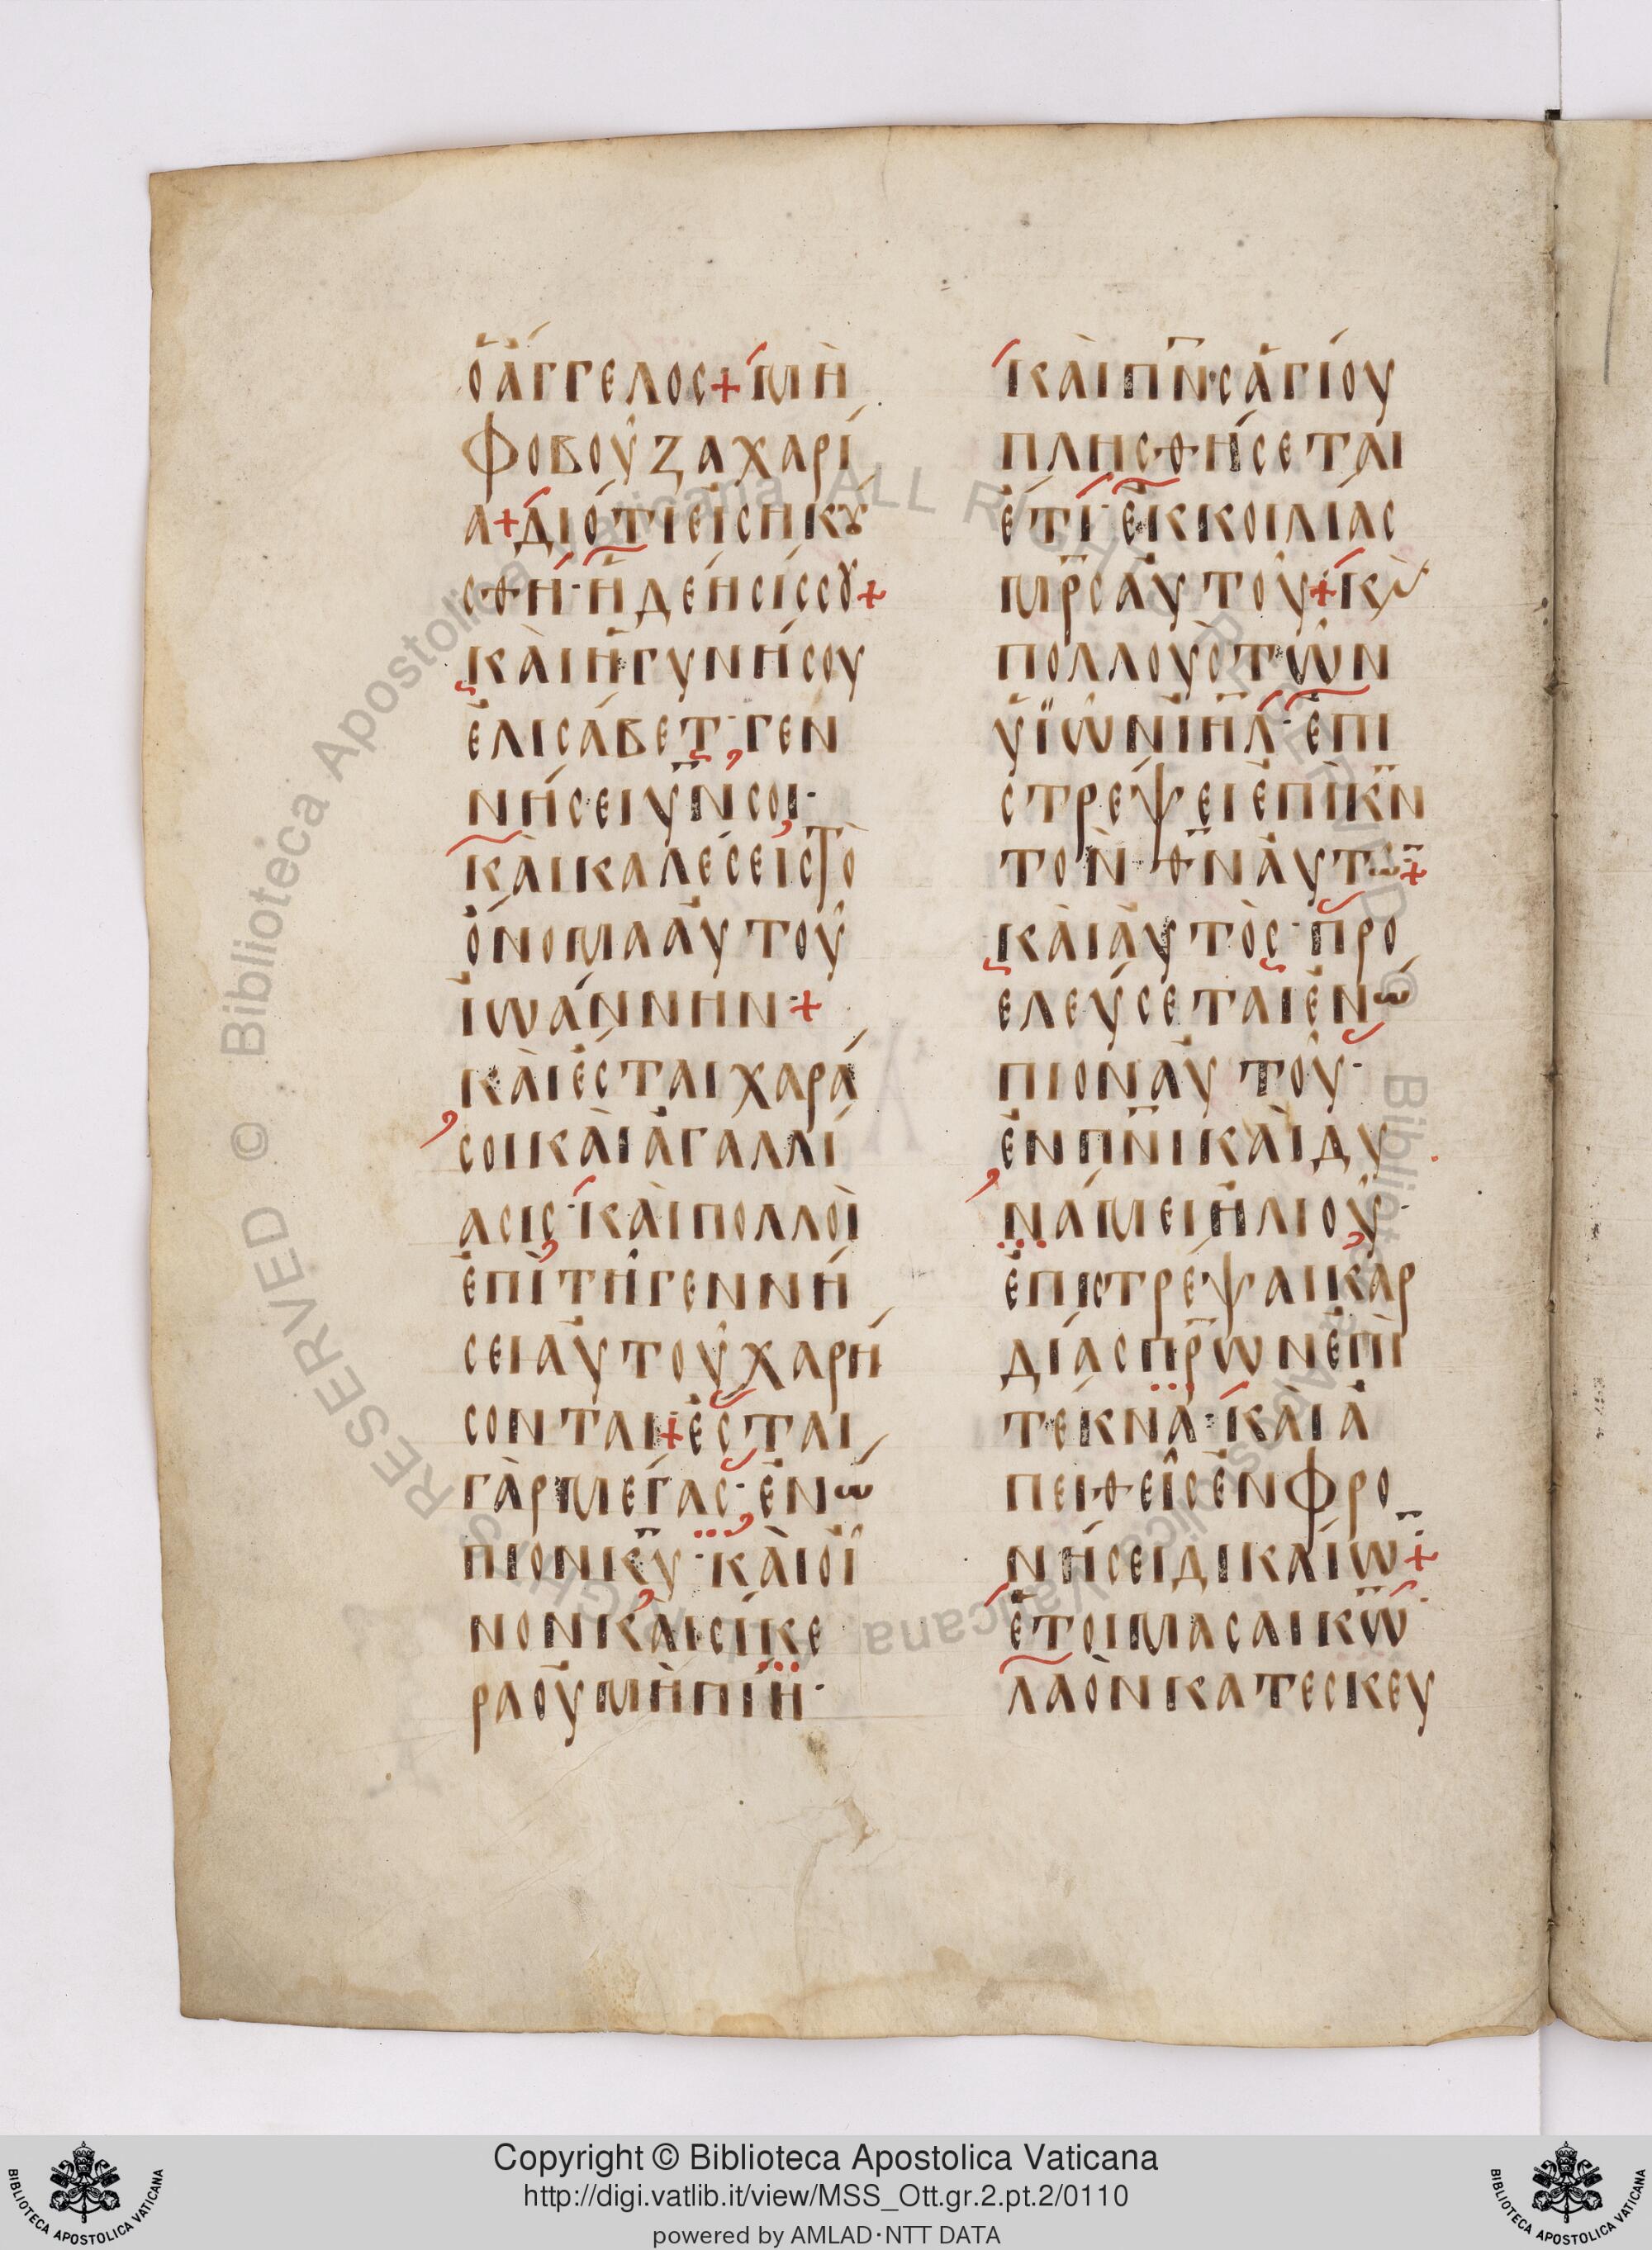 ὁ ἄγγελος + μὴ
φοβοῦ ζαχαρί
α + διότι εἰσηκȣ́
σθη · ἡ δέησίς σȣ +
καὶ ἡ γυνή σου
ἐλισάβετ · γεν
νήσει ῡν̄ σοι ·
καὶ καλέσεις τὸ
ὄνομα αὐτοῦ
ἰωάννην · +
καὶ ἔσται χαρά
σοι καὶ ἀγαλλί
ασις · καὶ πολλοὶ
ἐπὶ τῆ γεννή
σει αὐτοῦ χαρή
σονται + ἔσται
γὰρ μέγας · ἐνώ
πιον κ̄ῡ · καὶ οἶ
νον καὶ σίκε
ρα οὐ μὴ πίῃ ·
καὶ π̄ν̄ς ἁγίου
πλησθήσεται
ἔτι · ἐκ κοιλίας
μ̄ρ̄ς αὐτοῦ + κ̀
πολλοὺς τῶν
υἱῶν ῑη̄λ̄ · ἐπι
στρέψει ἐπὶ κ̄ν̄
τὸν θ̄ν̄ αὐτῶ̄ +
καὶ αὐτὸς · προ
ελεύσεται ἐνώ
πιον αὐτοῦ ·
ἐν π̄ν̄ι καὶ δυ
νάμει ἡλιοῦ ·
ἐπιστρέψαι καρ
δίας π̄ρ̄ων ἐπὶ
τέκνα · καὶ ἀ
πειθεῖς ἐν φρο
νήσει δικαίω̄ · +
ἑτοιμάσαι κ̄ω̄ ·
λαὸν κατεσκευ
Copyright © Biblioteca Apostolica Vaticana
http://digi.vatlib.it/view/MSS_Ott.gr.2.pt.2/0110
powered by AMLAD·NTT DATA
BIBLIOTECA APOSTOLICA VATICANA
BIBLIOTECA APOSTOLICA VATICANA
© Biblioteca Apostolica Vaticana ALL RIGHTS RESERVED
© Biblioteca Apostolica Vaticana ALL RIGHTS RESERVED